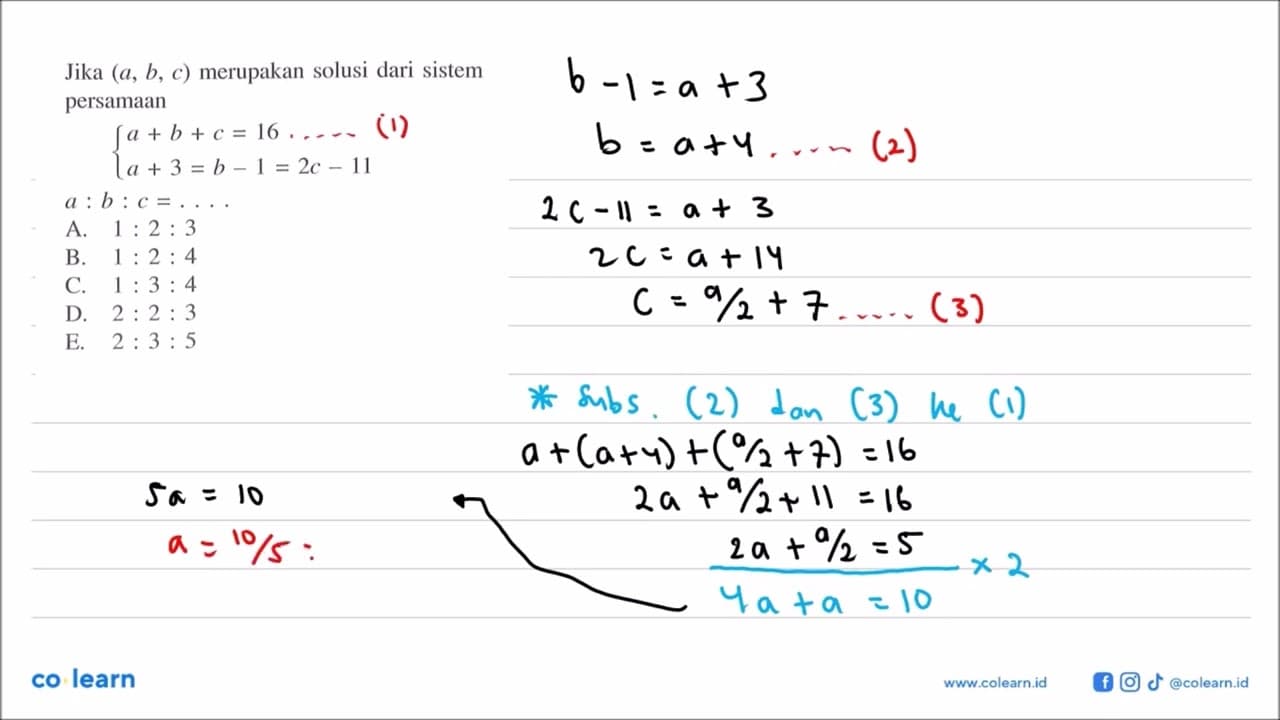 Jika (a, b, c) merupakan solusi dari sistem
persamaan
a + b + c = 16 ..... (1)
a + 3 = b – 1 = 2c – 11
a : b : c = . . . .
A. 1 : 2 : 3
B. 1 : 2 : 4
C. 1 : 3 : 4
D. 2 : 2 : 3
E. 2 : 3 : 5
b - 1 = a + 3
b = a + 4 ..... (2)
2c - 11 = a + 3
2c = a + 14
c = a/2 + 7 ..... (3)
* Subs. (2) dan (3) ke (1)
a + (a+4) + (a/2 + 7) = 16
2a + a/2 + 11 = 16
2a + a/2 = 5 × 2
4a + a = 10
5a = 10
a = 10/5 :
co learn
www.colearn.id
@colearn.id